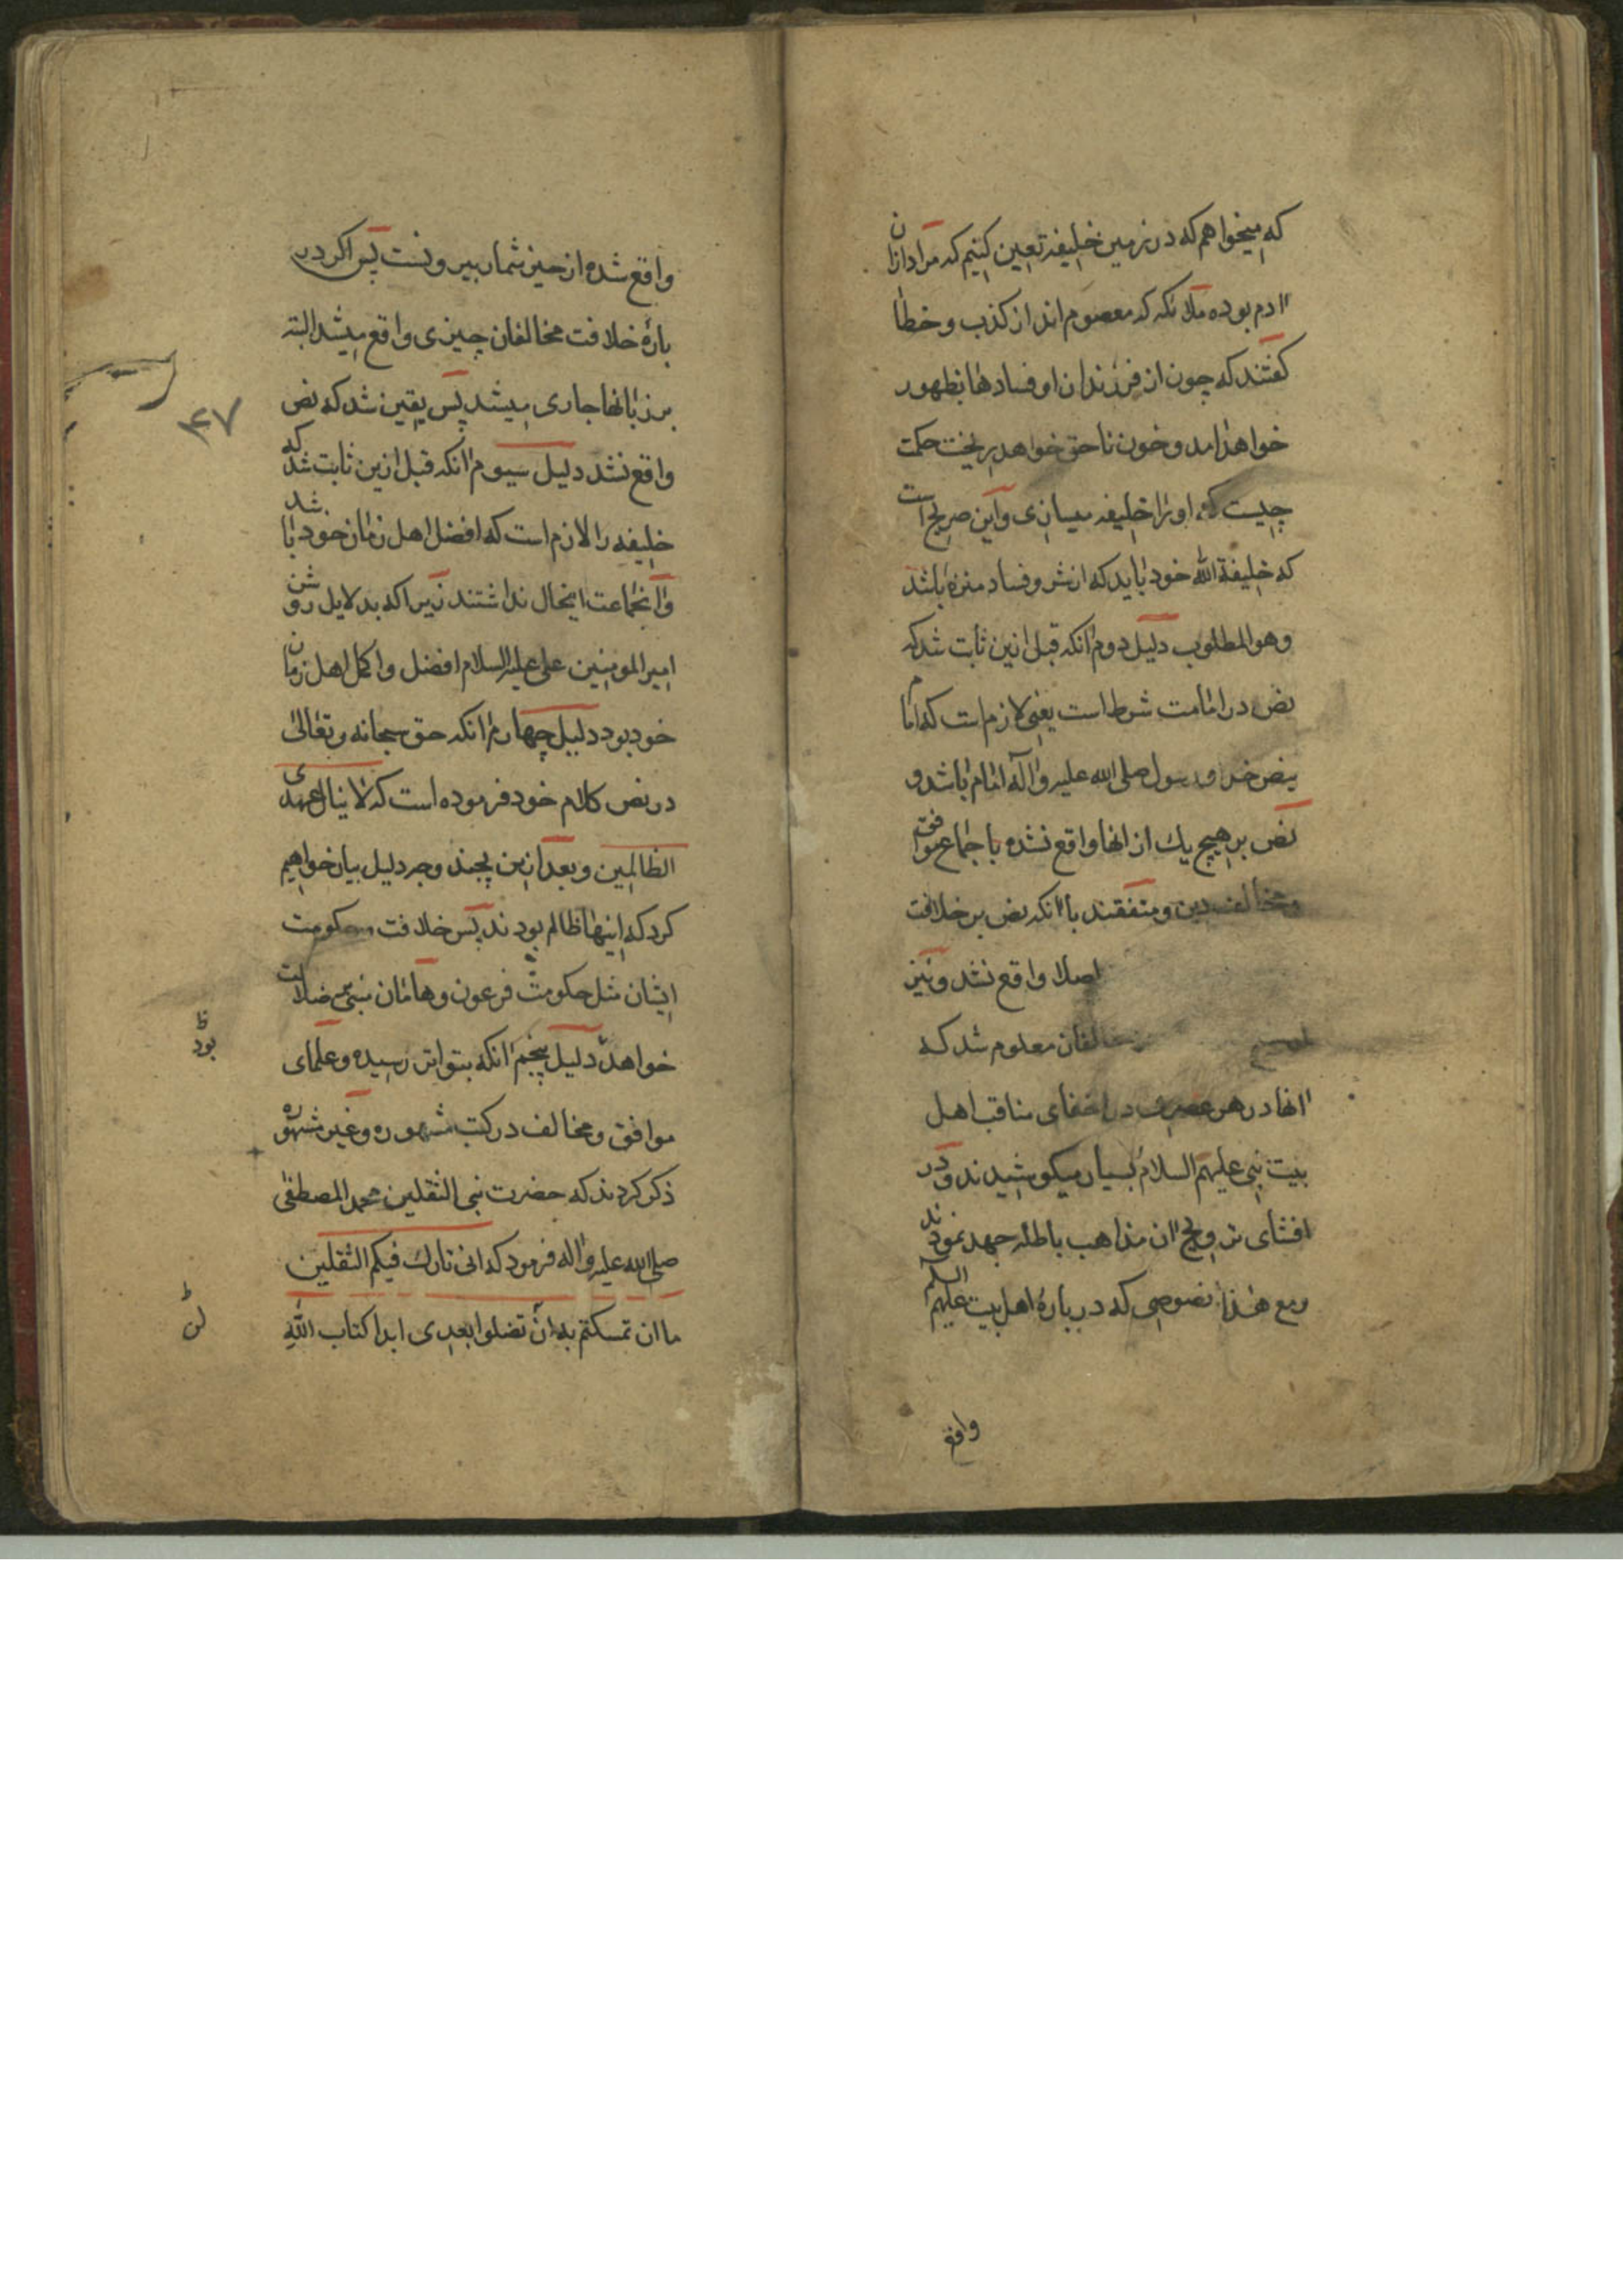 که میخواهم که در زمین خلیفه تعیین کنیم که مراد ازان
آدم بوده ملائکه که معصوم اند از کذب و خطا
کفتند که چون از فرزندان او فسادها بظهور
خواهد امد و خون ناحق خواهد ریخت حکمت
چیست که او را خلیفه میسازی و این صریح است
که خلیفة الله خود باید که از شر و فساد منزه باشد
وهو المطلوب دلیل دوم انکه قبل ازین ثابت شد که
نص در امامت شرط است یعنی لازم است که امام
بنص خدا و رسول صلی الله علیه وآله امام باشد و
نص بر هیچ یك از انها واقع نشده باجماع موافق
و مخالف دین و متفقند با انکه نص بر خلافت
اصلا واقع نشد و نیز
مخالفان معلوم شد که
انها در هر عصری در اخفای مناقب اهل
بیت نبی علیهم السلام بسیار میکوشیدند و در
افشای ترویج ان مذاهب باطله جهد نمودند
و مع هذا نصوصی که در بارۀ اهل بیت علیهم السلم
واقع
واقع شده از حیز شمار بیرونست پس اکر در
بارۀ خلافت مخالفان چیزی واقع میشد البته
بر زبانها جاری میشد پس یقین شد که نص
واقع نشد دلیل سیوم انکه قبل ازین ثابت شد که
خلیفه را لازم است که افضل اهل زمان خود باشد
و انجماعت اینحال نداشتند زیرا که بدلایل روشن
امیر المومنین علی علیه السلام افضل و اکمل اهل زمان
خود بود دلیل چهارم انکه حق سبحانه و تعالی
در نص کلام خود فرموده است که لا ینال عهدی
الظالمین و بعد ازین بچند وجه دلیل بیان خواهیم
کرد که اینها ظالم بودند پس خلافت و حکومت
ایشان مثل حکومت فرعون و هامان مبنی بر ضلالت
خواهد دلیل پنجم انکه بتواتر رسیده و علمای
موافق و مخالف در کتب مشهوره و غیر مشهوره
ذکر کردند که حضرت نبی الثقلین محمد المصطفی
صلی الله علیه واله فرمود که انی تارك فیکم الثقلین
ما ان تمسکتم به ان تضلوا بعدی ابدا کتاب الله
۴۷
ظ
بود
ظ
لن